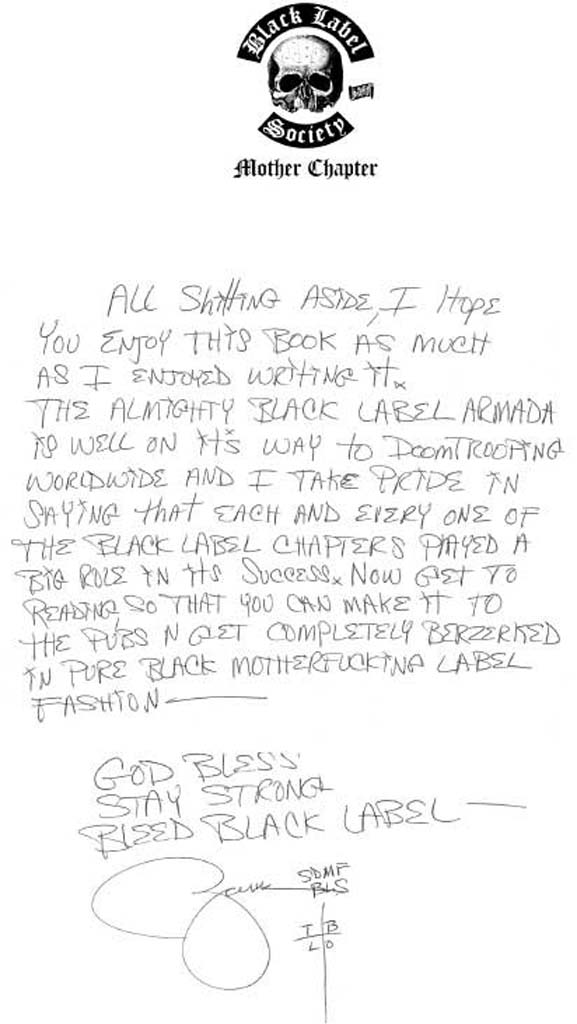 Black Label
Society
Mother Chapter
ALL ShittING ASIDE, I HOPE
YOU ENJOY THIS BOOK AS MUCH
AS I ENJOYED WRITING IT.
THE ALMIGHTY BLACK LABEL ARMADA
IS WELL ON IT'S WAY to DOOMTROOPING
WORLDWIDE AND I TAKE PRIDE IN
SAYING that EACH AND EVERY ONE OF
THE BLACK LABEL CHAPTERS PlAYED A
BIG ROLE IN ITS SUCCESS. NOW GET TO
READING, SO THAT YOU CAN MAKE IT TO
THE PUBS N GET COMPLETELY BERZERKED
IN PURE BLACK MOTHERFUCKING LABEL
FASHION—
GOD BLESS
STAY STRONG
BLEED BLACK LABEL—
SDMF
BLS
T B
L O